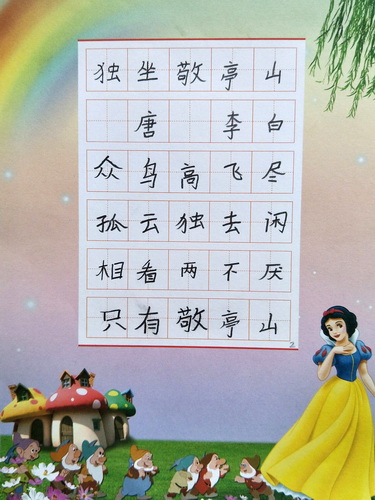 独坐敬亭山
唐 李白
众鸟高飞尽
孤云独去闲
相看两不厌
只有敬亭山
2